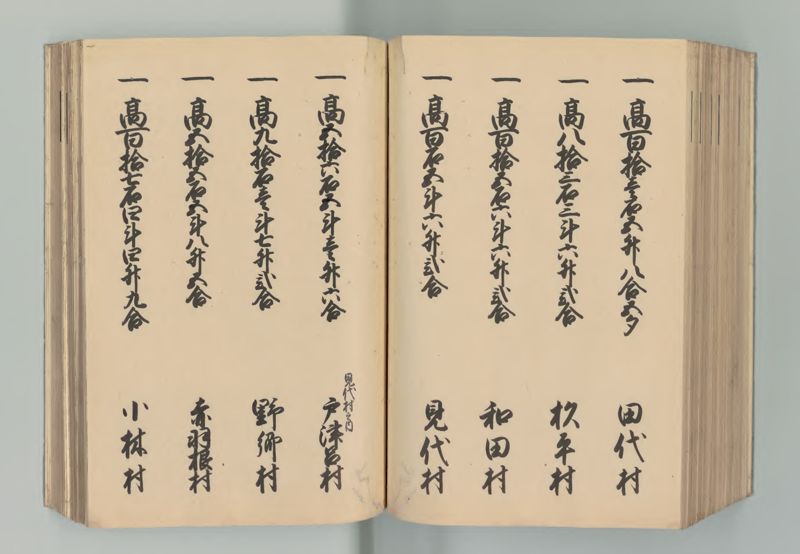 一 高百拾壱石五升八合五夕 田代村
一 高八拾三石三斗六升弐合 松平村
一 高百拾五石六斗六升弐合 和田村
一 高百石五斗六升弐合 見代村
一 高五拾六石五斗壱升六合 見代村之内 戸津呂村
一 高九拾石壱斗七升弐合 野郷村
一 高五拾五石五斗八升五合 赤羽根村
一 高百拾七石四斗四升九合 小林村